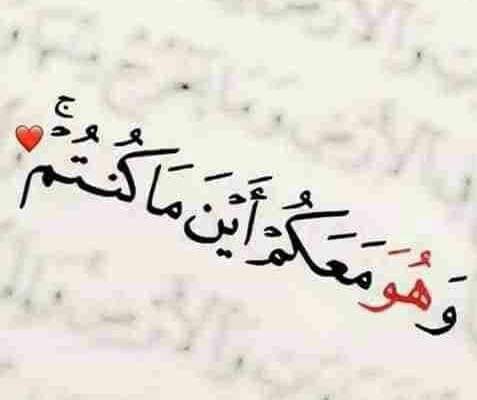 وَهُوَ مَعَكُمْ أَيْنَ مَا كُنتُمْ ۚ ❤️